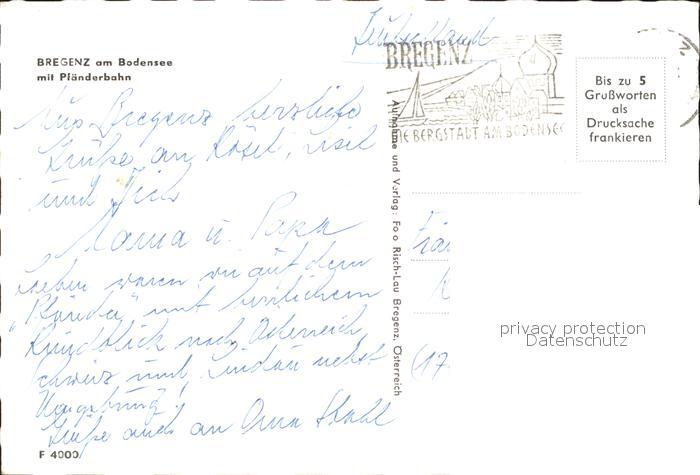 Deutschland
BREGENZ am Bodensee
mit Pfänderbahn
BREGENZ
DIE BERGSTADT AM BODENSEE
Bis zu 5
Grußworten
als
Drucksache
frankieren
Aus Bregenz herzliche
Grüße an Rösel, Lisel
und Dich
Mama u. Papa
soeben waren wir auf dem
"Pfänder" mit herrlichem
Rundblick nach Österreich,
Schweiz und Lindau nebst
Umgebung!
Grüße auch an Oma Stahl
Aufnahme und Verlag: Foto Risch-Lau Bregenz, Österreich
Frau
K
(17
privacy protection
Datenschutz
F 4000